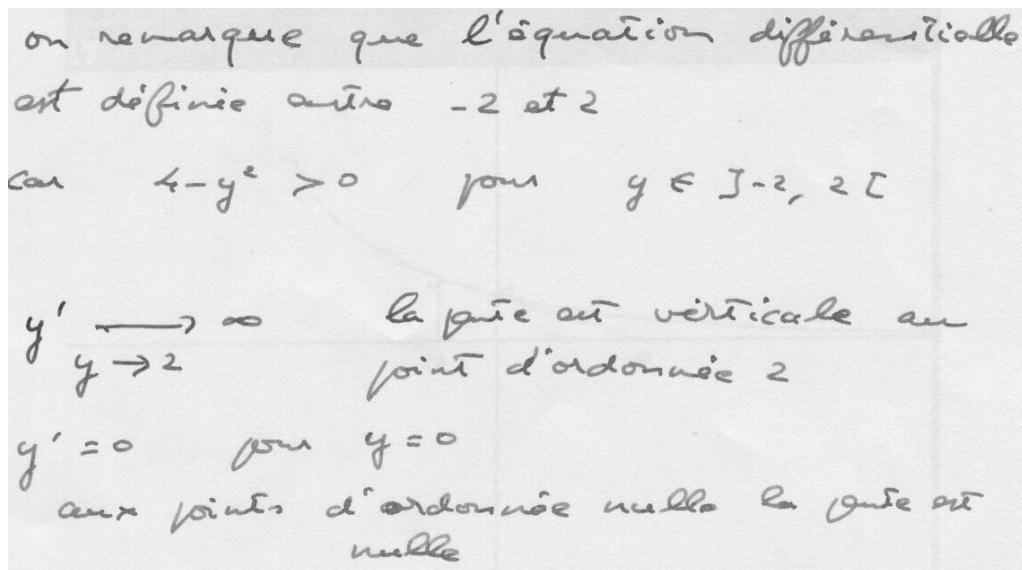 on remarque que l'équation différentielle
est définie entre -2 et 2
car 4-y² > 0 pour y ∈ ]-2, 2[
y' ⟶ ∞ la pente est verticale au
y → 2 point d'ordonnée 2
y' = 0 pour y = 0
aux points d'ordonnée nulle la pente est
nulle